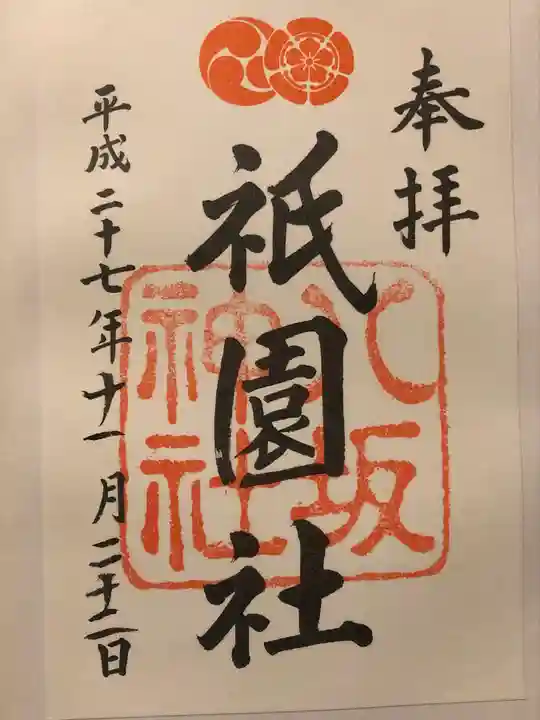 奉拝
祇園社
八坂
神社
平成二十七年十一月二十二日